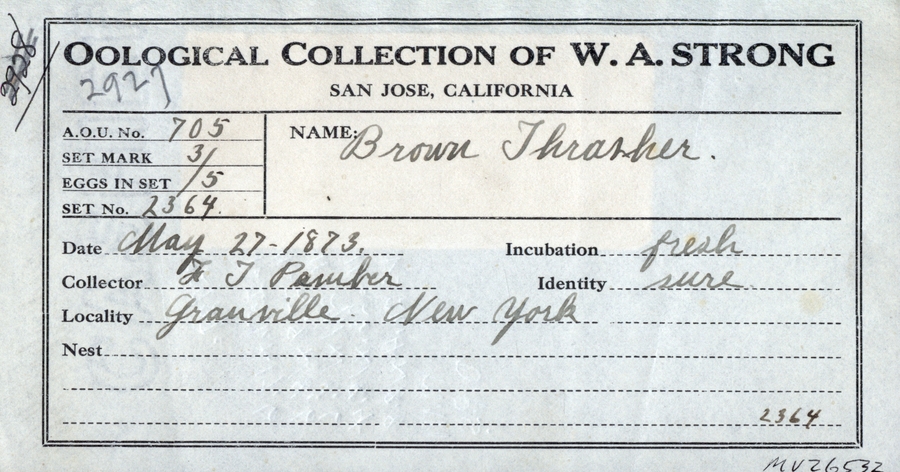 2928
OOLOGICAL COLLECTION OF W. A. STRONG
2927
SAN JOSE, CALIFORNIA
A.O.U. No. 705
NAME: Brown Thrasher.
SET MARK 3/
EGGS IN SET /5
SET No. 2364.
Date May 27-1873.
Incubation fresh
Collector F T Pember
Identity sure.
Locality Granville. New York
Nest
2364
MV26532